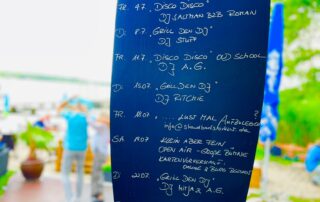 FR. 4.7. „DISCO DISCO"
DJ SALTMAN B2B ROMAN
DI 8.7. „GRILL DEN DJ"
DJ STUFF
FR 11.7 „DISCO DISCO" OLD SCHOOL
DJ A.G.
DI. 15.07. „GRILL DEN DJ"
DJ RITCHIE
FR. 18.07 .... LUST MAL AUFZULEGEN?
SA. 19.07. KLEIN ABER FEIN
OPEN AIR - BÜHNE
KARTENVORVERKAUF
ONLINE & BÜRO
DI 22.07. „GRILL DEN DJ"
DJ